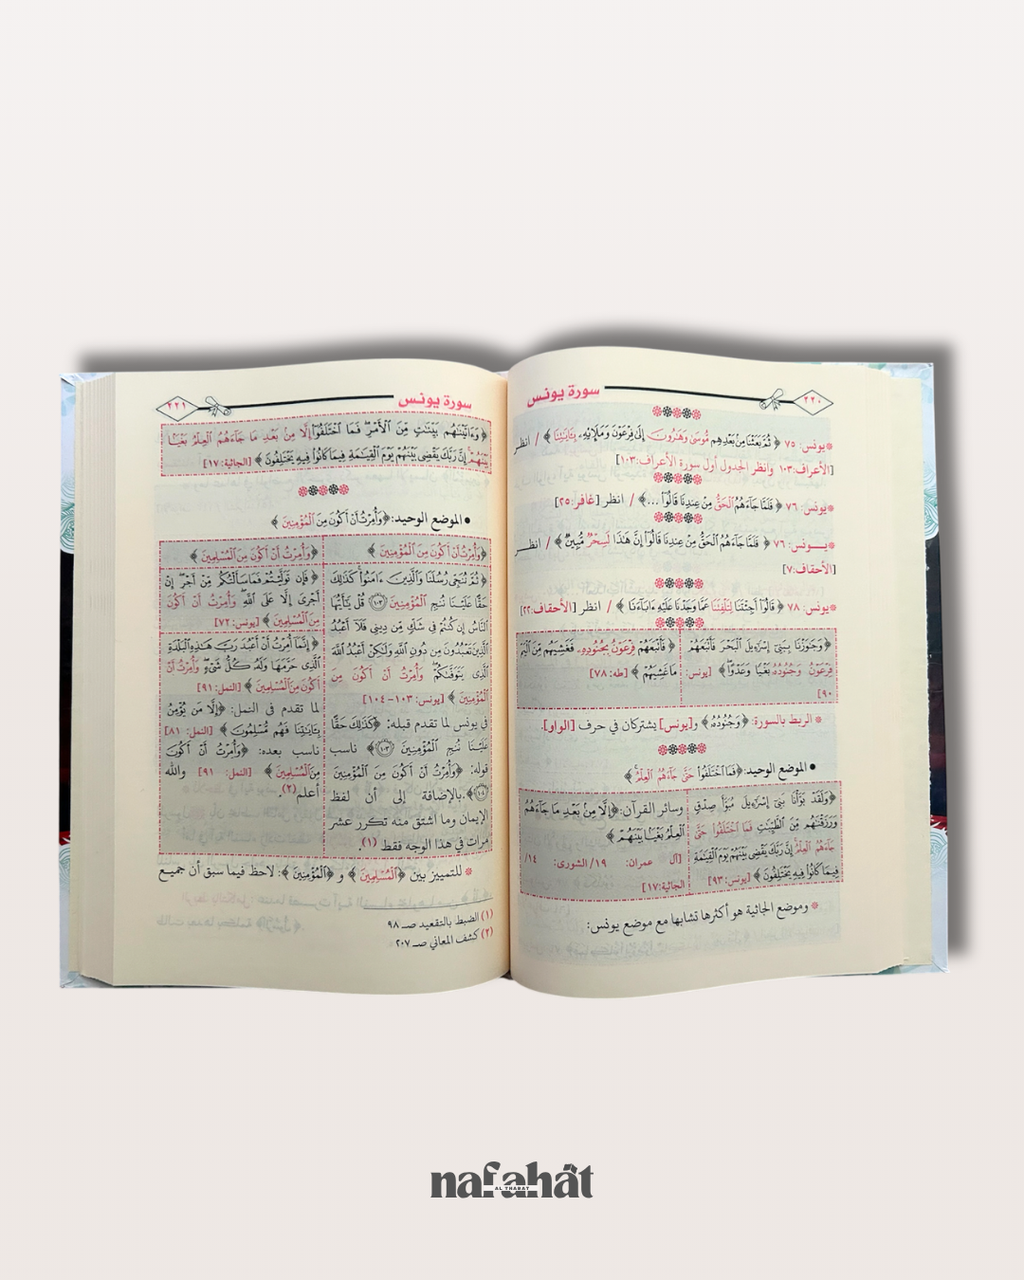 ٢٢٠
سورة يونس
*يونس: ٧٥ ﴿ ثُمَّ بَعَثْنَا مِنْ بَعْدِهِم مُّوسَىٰ وَهَٰرُونَ إِلَىٰ فِرْعَوْنَ وَمَلَإِيْهِۦ بِـَٔايَٰتِنَا ﴾ / انظر
[الأعراف:١٠٣ وانظر الجدول أول سورة الأعراف:١٠٣]
*يونس: ٧٦ ﴿ فَلَمَّا جَآءَهُمُ الْحَقُّ مِنْ عِندِنَا قَالُوٓا۟ ...﴾ / انظر [غافر:٢٥]
*يـــونس: ٧٦ ﴿ فَلَمَّا جَآءَهُمُ الْحَقُّ مِنْ عِندِنَا قَالُوٓا۟ إِنَّ هَٰذَا لَسِحْرٌ مُّبِينٌ ﴾ / انظـــر
[الأحقاف:٧]
*يونس: ٧٨ ﴿ قَالُوٓا۟ أَجِئْتَنَا لِتَلْفِتَنَا عَمَّا وَجَدْنَا عَلَيْهِ ءَابَآءَنَا ﴾ / انظر [الأحقاف:٢٢]
﴿ وَجَٰوَزْنَا بِبَنِىٓ إِسْرَٰٓءِيلَ الْبَحْرَ فَأَتْبَعَهُمْ
فِرْعَوْنُ وَجُنُودُهُۥ بَغْيًا وَعَدْوًا ﴾ [يونس:
٩٠]
﴿ فَأَتْبَعَهُمْ فِرْعَوْنُ بِجُنُودِهِۦ فَغَشِيَهُم مِّنَ الْيَمِّ
مَا غَشِيَهُمْ ﴾ [طه: ٧٨]
* الربط بالسورة: ﴿ وَجُنُودُهُۥ ﴾ و[يونس] يشتركان في حرف [الواو].
• الموضع الوحيد: ﴿فَمَا اخْتَلَفُوا۟ حَتَّىٰ جَآءَهُمُ الْعِلْمُ ﴾
﴿ وَلَقَدْ بَوَّأْنَا بَنِىٓ إِسْرَٰٓءِيلَ مُبَوَّأَ صِدْقٍ
وَرَزَقْنَٰهُم مِّنَ الطَّيِّبَٰتِ فَمَا اخْتَلَفُوا۟ حَتَّىٰ
جَآءَهُمُ الْعِلْمُ إِنَّ رَبَّكَ يَقْضِى بَيْنَهُمْ يَوْمَ الْقِيَٰمَةِ
فِيمَا كَانُوا۟ فِيهِ يَخْتَلِفُونَ ﴾ [يونس: ٩٣]
وسائر القرآن: ﴿إِلَّا مِنۢ بَعْدِ مَا جَآءَهُمُ
الْعِلْمُ بَغْيًۢا بَيْنَهُمْ ﴾
[آل عمران: ١٩/ الشورى: ١٤/
الجاثية: ١٧]
* وموضع الجاثية هو أكثرها تشابها مع موضع يونس:
سورة يونس
٢٢١
﴿ وَءَاتَيْنَٰهُم بَيِّنَٰتٍ مِّنَ الْأَمْرِ فَمَا اخْتَلَفُوٓا۟ إِلَّا مِنۢ بَعْدِ مَا جَآءَهُمُ الْعِلْمُ بَغْيًۢا
بَيْنَهُمْ إِنَّ رَبَّكَ يَقْضِى بَيْنَهُمْ يَوْمَ الْقِيَٰمَةِ فِيمَا كَانُوا۟ فِيهِ يَخْتَلِفُونَ ﴾ [الجاثية: ١٧]
• الموضع الوحيد: ﴿وَأُمِرْتُ أَنْ أَكُونَ مِنَ الْمُؤْمِنِينَ ﴾
﴿وَأُمِرْتُ أَنْ أَكُونَ مِنَ الْمُؤْمِنِينَ ﴾
﴿ ثُمَّ نُنَجِّى رُسُلَنَا وَالَّذِينَ ءَامَنُوا۟ كَذَٰلِكَ
حَقًّا عَلَيْنَا نُنجِ الْمُؤْمِنِينَ ﴿١٠٣﴾ قُلْ يَٰٓأَيُّهَا
النَّاسُ إِن كُنتُمْ فِى شَكٍّ مِّن دِينِى فَلَآ أَعْبُدُ
الَّذِينَ تَعْبُدُونَ مِن دُونِ اللَّهِ وَلَٰكِنْ أَعْبُدُ اللَّهَ
الَّذِى يَتَوَفَّىٰكُمْ وَأُمِرْتُ أَنْ أَكُونَ مِنَ
الْمُؤْمِنِينَ ﴾ [يونس: ١٠٣-١٠٤]
في يونس لما تقدم قبله: ﴿كَذَٰلِكَ حَقًّا
عَلَيْنَا نُنجِ الْمُؤْمِنِينَ ﴿١٠٣﴾ ناسب
قوله: ﴿وَأُمِرْتُ أَنْ أَكُونَ مِنَ الْمُؤْمِنِينَ
﴿١٠٤﴾.بالإضافة إلى أن لفظ
الإيمان وما اشتق منه تكرر عشر
مرات في هذا الوجه فقط (١).
﴿وَأُمِرْتُ أَنْ أَكُونَ مِنَ الْمُسْلِمِينَ ﴾
﴿ فَإِن تَوَلَّيْتُمْ فَمَا سَأَلْتُكُم مِّنْ أَجْرٍ إِنْ
أَجْرِىَ إِلَّا عَلَى اللَّهِ وَأُمِرْتُ أَنْ أَكُونَ
مِنَ الْمُسْلِمِينَ ﴾ [يونس: ٧٢]
﴿ إِنَّمَآ أُمِرْتُ أَنْ أَعْبُدَ رَبَّ هَٰذِهِ الْبَلْدَةِ
الَّذِى حَرَّمَهَا وَلَهُۥ كُلُّ شَىْءٍ وَأُمِرْتُ أَنْ
أَكُونَ مِنَ الْمُسْلِمِينَ ﴾ [النمل: ٩١]
لما تقدم في النمل: ﴿إِلَّا مَن يُؤْمِنُ
بِـَٔايَٰتِنَا فَهُم مُّسْلِمُونَ ﴾ [النمل: ٨١]
ناسب بعده: ﴿وَأُمِرْتُ أَنْ أَكُونَ
مِنَ الْمُسْلِمِينَ ﴾ [النمل: ٩١] والله
أعلم(٢).
* للتمييز بين ﴿الْمُسْلِمِينَ ﴾ و ﴿الْمُؤْمِنِينَ ﴾: لاحظ فيما سبق أن جميع
(١) الضبط بالتقعيد صـ ٩٨
(٢) كشف المعاني صـ ٢٠٧
nafahat
AL THABAT